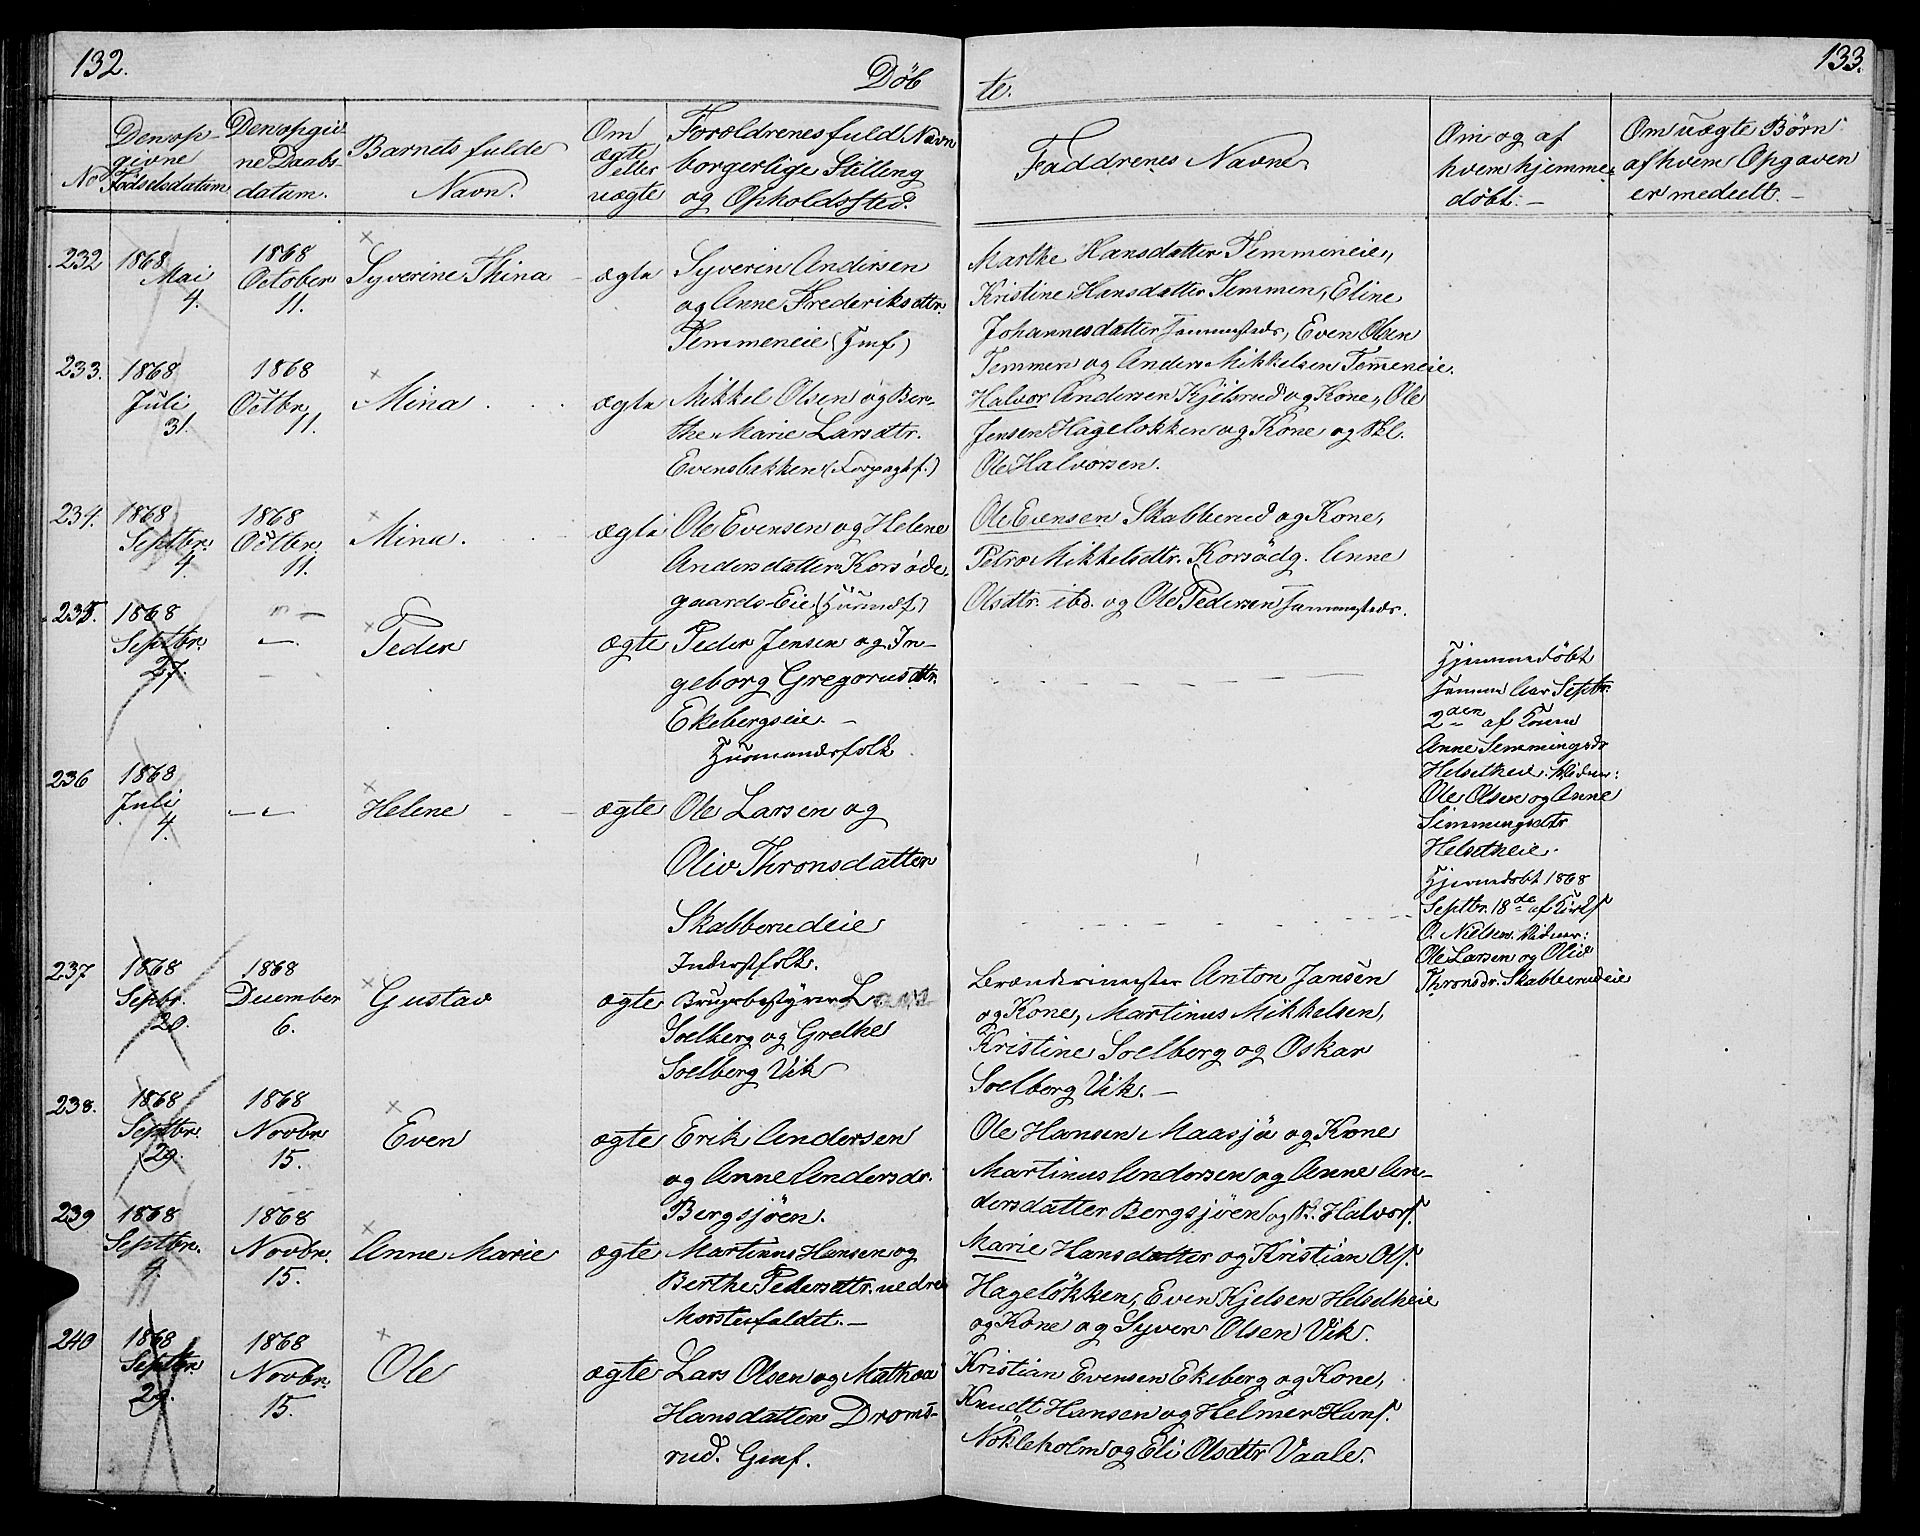 132.
Døb
te.
133.
No
Den op-
givne
Fødselsdatum
Den opgiv
ne Daabs
datum.
Barnets fulde
Navn.
Om
ægte
eller
uægte
Forældrenes fuld Navn
borgerlige Stilling
og Opholdssted.
Faddrenes Navne
Om og af
hvem hjemme-
døbt. -
Om uægte Børn
af hvem Opgaven
er meddelt. -
232
1868
Mai
4.
1868
October
11.
Syverine Thina
ægte
Syverin Andersen
og Anne Frederiksdtr.
Temmeneie (Huf)
Marthe Hansdatter Temmeneie,
Kristine Hansdatter Temmen, Eline
Johannesdatter sammesteds, Even Olsen
Temmen og Anders Mikkelsen Temeneie.
233.
1868
Juli
31.
1868
Octbr.
11.
Mina
ægte
Mikkel Olsen og Ber-
the Marie Larsdtr.
Evensbekken
Halvor Andersen Kjelsrud og Kone, Ole
Jensen Hageløkken og Kone og
Ole Halvorsen.
234.
1868
Septbr.
4.
1868
Octbr.
11.
Mina.
ægte
Ole Evensen og Helene
Andersdatter Korsøde-
gaards Eie (Huusmdf.)
Ole Evensen Skabberud og Kone,
Petra Mikkelsdtr. Korsødg. Anne
Olsdtr. ibd. og Ole Pedersen sammesteds.
235.
1868
Septbr.
27.
" -
-
Peder
ægte
Peder Jensen og In-
geborg Gregorusdtr.
Ekebergseie. -
Huusmandsfolk
Hjemmedøbt
samme Aar Septbr.
2den af Konen
Anne Semmingsdr
Helsetheie. Vidner:
Ole Olsen og Anne
Semmingsdtr
Helsetheie.
236
1868
Juli
4.
Helene
ægte
Ole Larsen og
Oliv Thronsdatter
Skabberudeie
Inderstfolk.
Hjemmedøbt 1868
Septbr. 18de af
O. Nielsen. Vidner:
Ole Larsen og Oliv
Thronsdr. Skabberudeie
237
1868
Sepbr.
20.
1868
December
6.
Gustav
ægte
Brugsbestyrer
Soelberg og Grethe
Soelberg Vik
Brænderimester Anton Jansen
og Kone, Martinus Mikkelsen,
Kristine Soelberg og Oskar
Soelberg Vik. -
238.
1868
Septbr.
29.
1868
Novbr
15.
Even
ægte
Erik Andersen
og Anne Andersdr.
Bergsjøen.
Ole Hansen Maasjø og Kone
Martinus Andersen og Anne An-
dersdatter Bergsjøen og Halvors.
239
1868
Septbr.
9.
1868
Novbr.
15.
Anne Marie
ægte
Martinus Hansen og
Berthe Pedersdtr. nedre
Morstenfaldet. -
Marie Hansdatter og Kristian Ols.
Hageløkken, Even Kjelsen Helsetheie
og Kone og Syver Olsen Vik.
240
1868
Septbr.
29.
1868
Novbr.
15.
Ole
ægte
Lars Olsen og Mathea
Hansdatter Droms-
rud. Gmf.
Kristian Evensen Ekeberg og Kone,
Knudt Hansen og Helmer Hans.
Nökleholm og Eli Olsdtr Vaale.